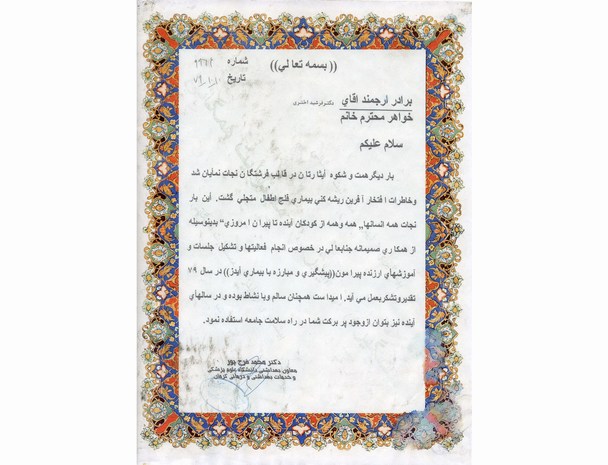 (( بسمه تعا لي))
شماره
تاريخ
برادر ارجمند اقاي دكتر فرشيد اختري
خواهر محترم خانم
سلام عليكم
بار ديگر همت و شكوه ايثا رتا ن در قا لب فرشتگا ن نجات نمايان شد
وخاطرات ا فتخار ا فرين ريشه كني بيماري فلج اطفال متجلي گشت. اين بار
نجات همه انسانها,, همه وهمه از كودكان آينده تا پيرا ن ا مروزي" بدينوسيله
از همكا ري صميمانه جنابعا لي در خصوص انجام فعاليتها و تشكيل جلسات و
آموزشهاي ارزنده پيرا مون((پيشگيري و مبارزه با بيماري آيدز)) در سال ٧٩
تقديروتشكربعمل مي آيد. ا ميدا ست همچنان سالم وبا نشاط بوده و در سالهاي
آينده نيز بتوان ازوجود پر بركت شما در راه سلامت جامعه استفاده نمود.
دكتر محمد فرج پور
معاون بهداشتي دانشگاه علوم پزشكي
و خدمات بهداشتي و درماني كرمان